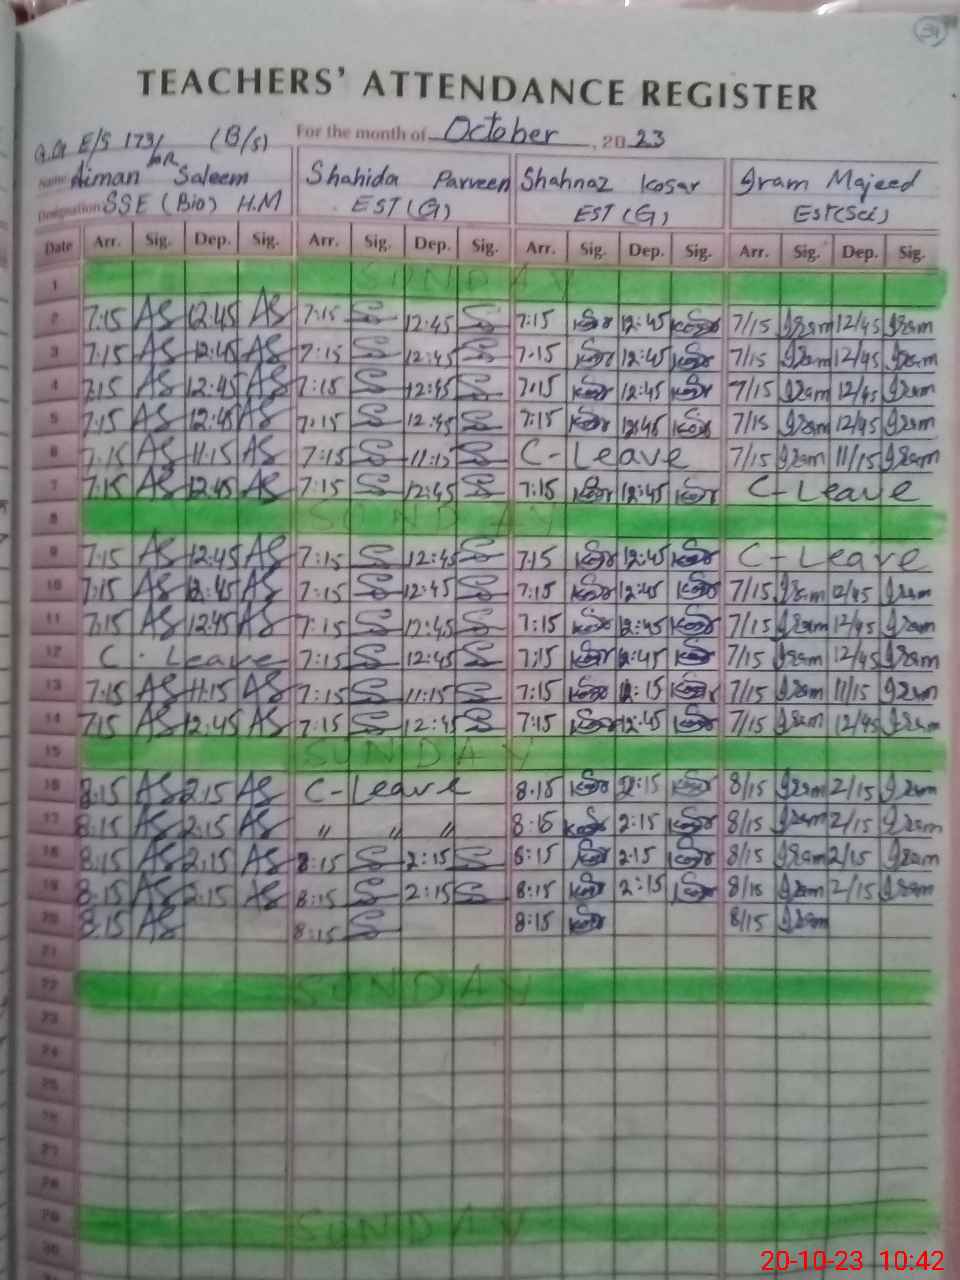 34
TEACHERS' ATTENDANCE REGISTER
G.G E/S 173/ (B/S) For the month of October, 2023
Name Aiman Saleem Shahida Parveen Shahnaz Kosar Iram Majeed
Designation SSE (Bio) H.M EST (G) EST (G) EST (Sci)
Date Arr. Sig. Dep. Sig. Arr. Sig. Dep. Sig. Arr. Sig. Dep. Sig. Arr. Sig. Dep. Sig.
1 SUNDAY
2 7:15 AS 12:45 AS 7:15 12:45 7:15 Kosar 12:45 Kosar 7/15 Iram 12/45 Iram
3 7:15 AS 12:45 AS 7:15 12:45 7:15 Kosar 12:45 Kosar 7/15 Iram 12/45 Iram
4 7:15 AS 12:45 AS 7:15 12:45 7:15 Kosar 12:45 Kosar 7/15 Iram 12/45 Iram
5 7:15 AS 12:45 AS 7:15 12:45 7:15 Kosar 12:45 Kosar 7/15 Iram 12/45 Iram
6 7:15 AS 11:15 AS 7:15 11:15 C-Leave 7/15 Iram 11/15 Iram
7 7:15 AS 12:45 AS 7:15 12:45 7:15 Kosar 12:45 Kosar C-Leave
8 SUNDAY
9 7:15 AS 12:45 AS 7:15 12:45 7:15 Kosar 12:45 Kosar C-Leave
10 7:15 AS 12:45 AS 7:15 12:45 7:15 Kosar 12:45 Kosar 7/15 Iram 12/45 Iram
11 7:15 AS 12:45 AS 7:15 12:45 7:15 Kosar 12:45 Kosar 7/15 Iram 12/45 Iram
12 C. Leave 7:15 12:45 7:15 Kosar 12:45 Kosar 7/15 Iram 12/45 Iram
13 7:15 AS 11:15 AS 7:15 11:15 7:15 Kosar 11:15 Kosar 7/15 Iram 11/15 Iram
14 7:15 AS 12:45 AS 7:15 12:45 7:15 Kosar 12:45 Kosar 7/15 Iram 12/45 Iram
15 SUNDAY
16 8:15 AS 2:15 AS C-Leave 8:15 Kosar 2:15 Kosar 8/15 Iram 2/15 Iram
17 8:15 AS 2:15 AS " " " 8:15 Kosar 2:15 Kosar 8/15 Iram 2/15 Iram
18 8:15 AS 2:15 AS 8:15 2:15 8:15 Kosar 2:15 Kosar 8/15 Iram 2/15 Iram
19 8:15 AS 2:15 AS 8:15 2:15 8:15 Kosar 2:15 Kosar 8/15 Iram 2/15 Iram
20 8:15 AS 8:15 8:15 Kosar 8/15 Iram
21
22 SUNDAY
23
24
25
26
27
28
29 SUNDAY
30
20-10-23 10:42